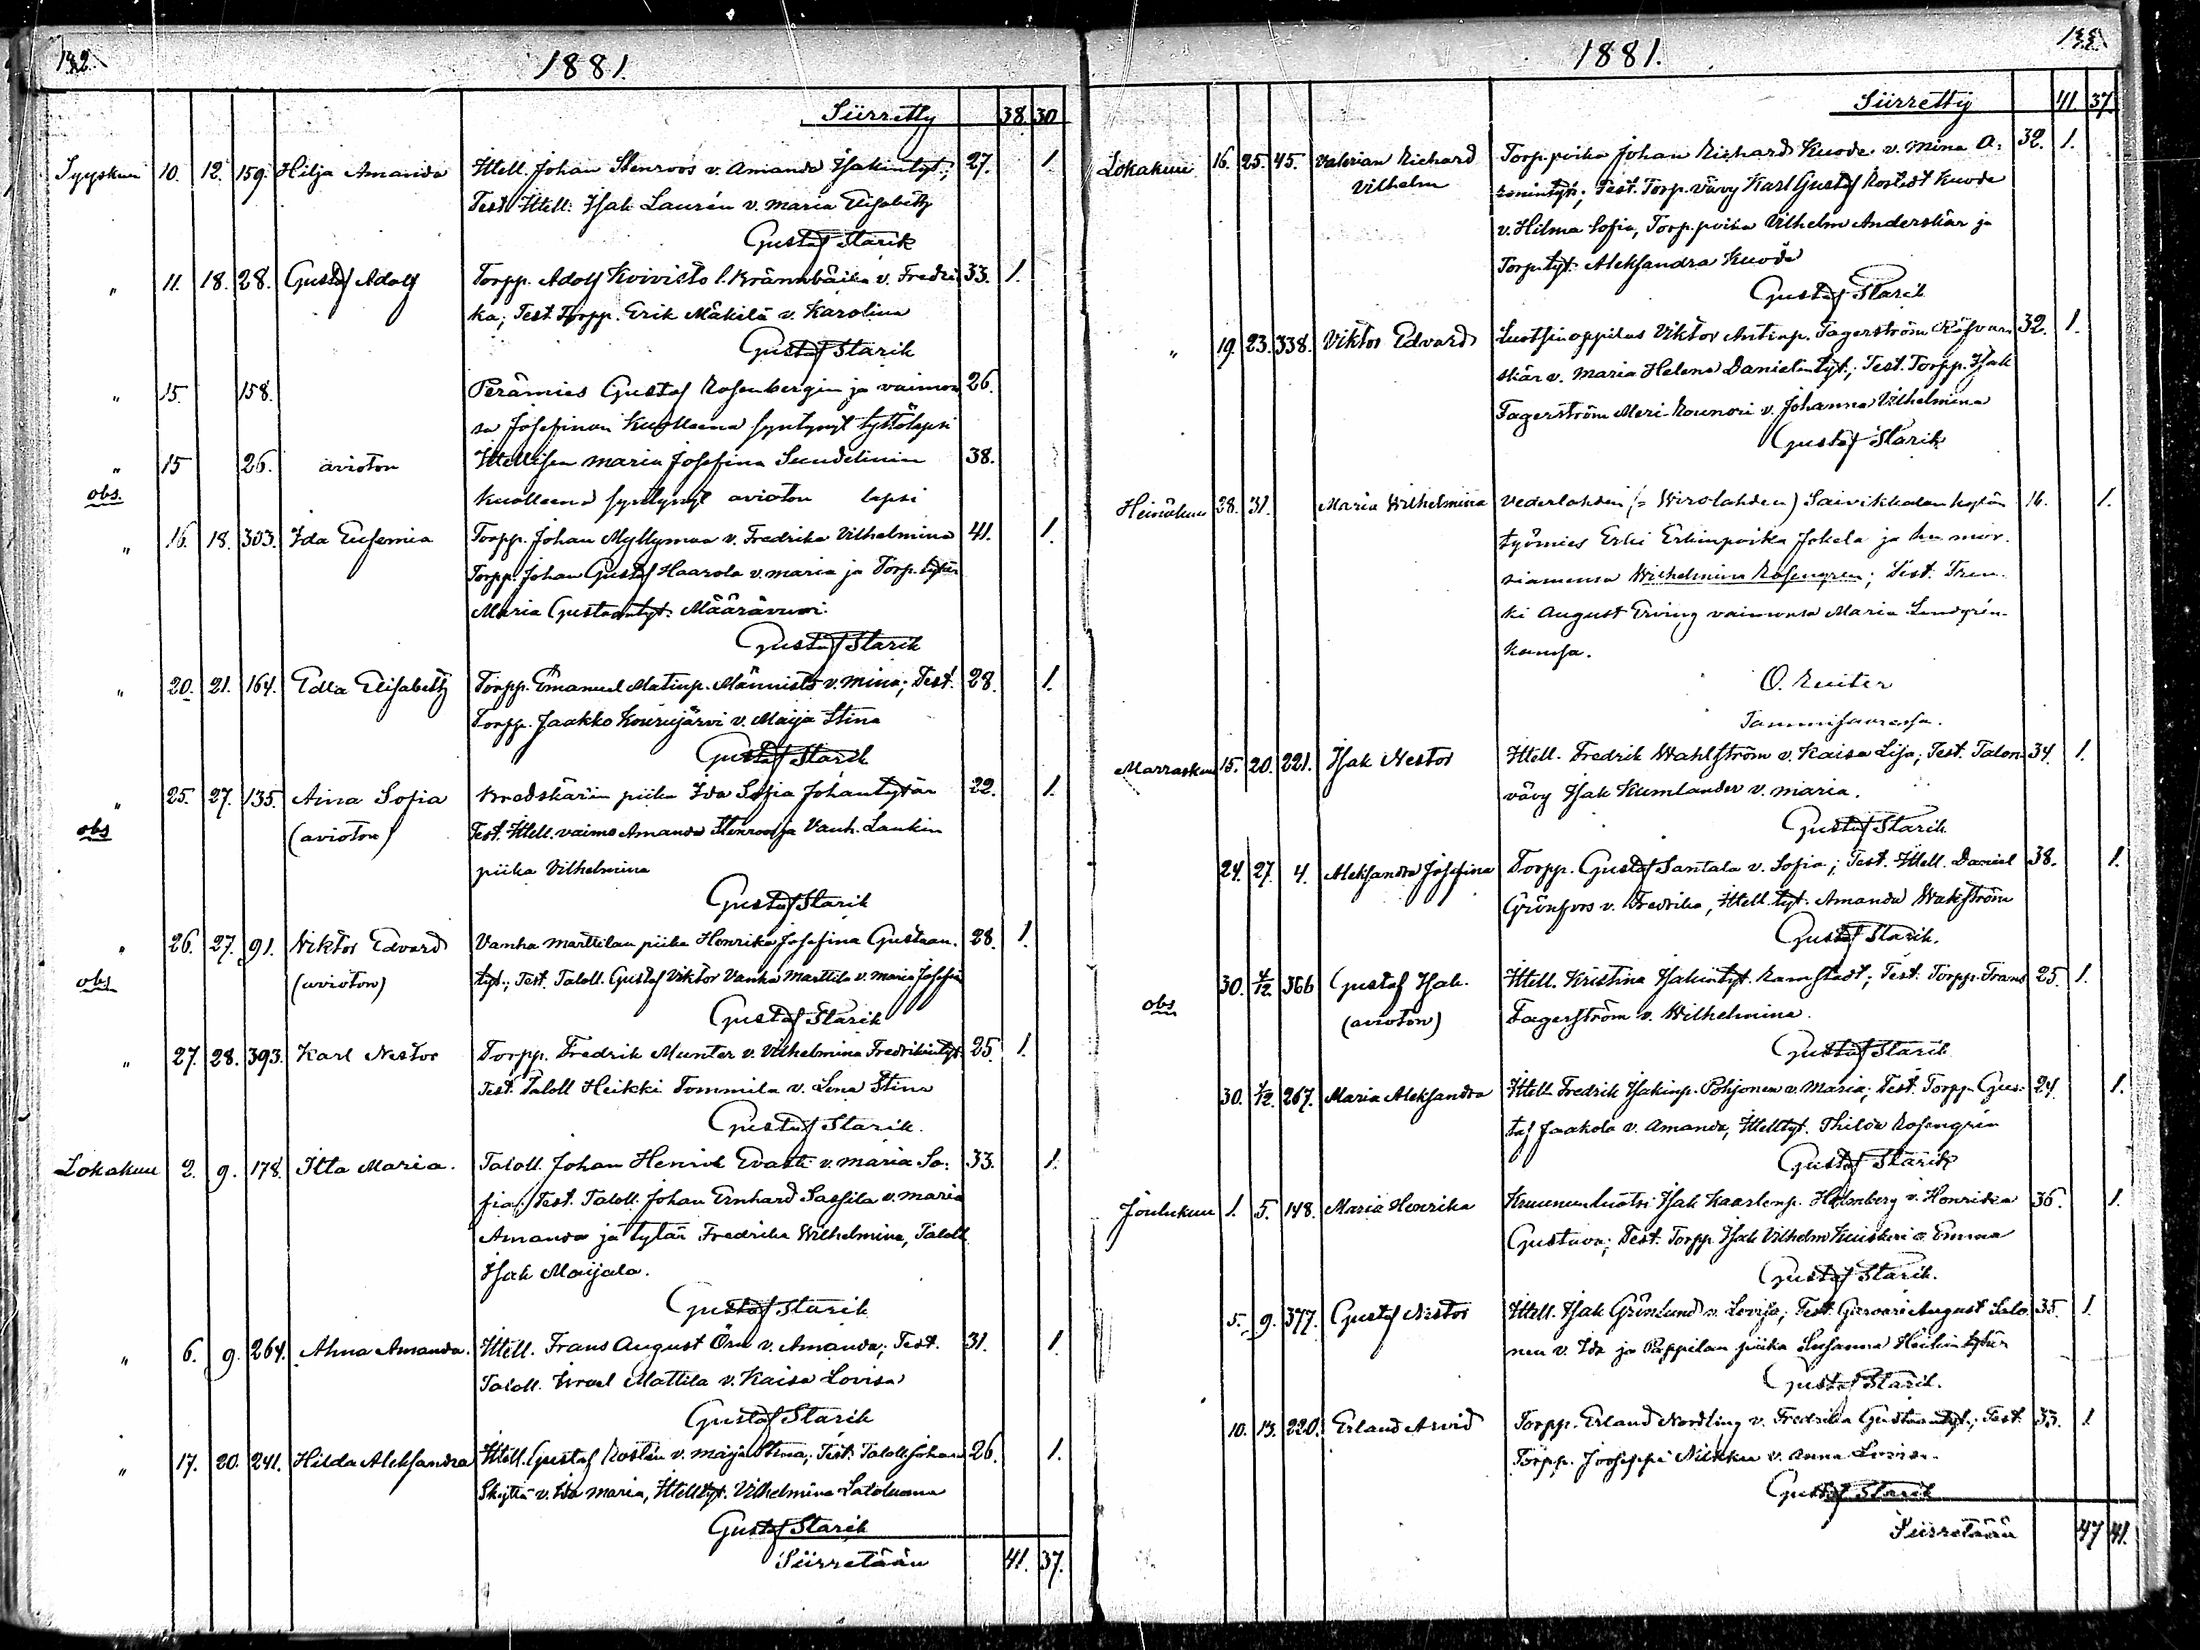 132.
1881.
Siirretty 38. 30
Syyskuu 10. 12. 159. Hilja Amanda Ittell. Johan Stenroos v. Amanda Isakintyt.; 27. 1.
Test. Ittell. Isak Laurén v. Maria Elisabeth
Gustaf Starik
„ 11. 18. 28. Gustaf Adolf Torpp. Adolf Koivisto l. Brännbäcka v. Fredri- 33. 1.
ka; Test. Torpp. Erik Mäkilä v. Karolina
Gustaf Starik
„ 15. 158. Perämies Gustaf Rosenbergin ja vaimon- 26.
sa Josefinan kuolleena syntynyt tyttölapsi
„ 15 26. avioton Ittellisen Maria Josefina Sundelinin 38.
obs. kuolleena syntynyt avioton lapsi
„ 16. 18. 303. Ida Eufemia Torpp. Johan Myllymaa v. Fredrika Vilhelmina 41. 1.
Torpp. Johan Gustaf Haarola v. Maria ja Torp. tytär
Maria Gustaantyt. Määrävuori.
Gustaf Starik
„ 20. 21. 164. Edla Elisabeth Torpp. Emanuel Matinp. Männistö v. Mina; Test. 28. 1.
Torpp. Jaakko Kourujärvi v. Maija Stina
Gustaf Starik
„ 25. 27. 135. Aina Sofia Bredskärin piika Ida Sofia Johantytär 22. 1.
obs (avioton) Test. Ittell. vaimo Amanda Stenroos ja Vanh. Laukin
piika Vilhelmina
Gustaf Starik
„ 26. 27. 91. Viktor Edvard Vanha Marttilan piika Henrika Josefina Gustaan- 28. 1.
obs (avioton) tyt.; Test. Taloll. Gustaf Viktor Vanha Marttila v. Maria Josefin
Gustaf Starik
„ 27. 28. 393. Karl Nestor Torpp. Fredrik Munter v. Vilhelmina Fredrikintyt. 25. 1.
Test. Taloll Heikki Tommila v. Lena Stina
Gustaf Starik.
Lokakuu 2. 9. 178. Itta Maria. Taloll. Johan Henrik Evasti v. Maria So- 33. 1.
fia; Test. Taloll. Johan Ernhard Sassila v. Maria
Amanda ja tytär Fredrika Wilhelmina, Taloll
Isak Maijala.
Gustaf Starik
„ 6. 9. 264. Alma Amanda. Ittell. Frans August Örn v. Amanda; Test. 31. 1.
Taloll. Israel Mattila v. Kaisa Lovisa
Gustaf Starik
„ 17. 20. 241. Hilda Aleksandra Ittell. Gustaf Roslén v. Maija Stina; Test. Taloll. Johan 26. 1.
Skyttä v. Ida Maria, Ittell tyt. Vilhelmina Latoluoma
Gustaf Starik
Siirretään 41. 37.
133.
1881.
Siirretty 41 37.
Lokakuu 16. 25. 45. Valerian Richard Torp. poika Johan Richard Kuode v. Mina A- 32. 1.
Vilhelm Test. Torp. vävy Karl Gustaf Rostedt Kuode
v. Hilma Sofia, Torp. poika Vilhelm Anderskär ja
Torp. tyt. Aleksandra Kuode
Gustaf Starik
„ 19. 23. 338. Viktor Edvard Luotsinoppilas Viktor Antinp. Fagerström 32. 1.
skär v. Maria Helena Danielintyt.; Test. Torpp. Isak
Fagerström Meri-Rounori v. Johanna Vilhelmina
Gustaf Starik
Heinäkuu 28. 31. Maria Wilhelmina Vederlahden (= Wirolahden) Saivikkalan kylän 16. 1.
työmies Erki Erkinpoika Jokela ja hn mor-
siamensa Wilhelmina Rosengren; Test. Tren-
ki August Erving vaimonsa Maria Lindgrén-
kanssa.
O. Reuter
Tammisaaressa.
Marraskuu 15. 20. 221. Isak Nestor Ittell. Fredrik Wahlström v. Kaisa Lisa; Test. Talon 34. 1.
vävy Isak Kumlander v. Maria.
Gustaf Starik
24. 27. 4. Aleksandra Josefina Torpp. Gustaf Santala v. Sofia; Test. Ittell. Daniel 38. 1.
Grönfors v. Fredrika, Ittell. tyt. Amanda Wahlström
Gustaf Starik.
30. 4/12. 366 Gustaf Isak. Ittell. Kristina Isakintyt. Ramstedt; Test. Torpp. Frans 25. 1.
obs (avioton) Fagerström v. Wilhelmina.
Gustaf Starik
30. 4/12. 267. Maria Aleksandra Ittell. Fredrik Isakinp. Pohjonen v. Maria; Test. Torpp. Gus- 24. 1.
taf Jaakola v. Amanda, Ittell tyt. Thilda Rosengrén
Gustaf Starik
Joulukuu 1. 5. 148. Maria Henrika Kruununluotsi Isak Kaarlenp. Holmberg v. Henrika 36. 1.
Gustava; Test. Torpp. Isak Vilhelm Kuiskeri v. Emma
Gustaf Starik.
5. 9. 377. Gustaf Nestor Ittell. Isak Grönlund v. Lovisa; Test. Garvari August Salo- 35. 1.
nen v. Ida ja Pappilan piika Susanna Heikintytär
Gustaf Starik.
10. 13. 220. Erland Arvid Torpp. Erland Nordling v. Fredrika Gustaantyt.; Test. 33. 1.
Torpp. Jooseppi Nikku v. Anna Lovisa.
Gustaf Starik
Siirretään 47 41.